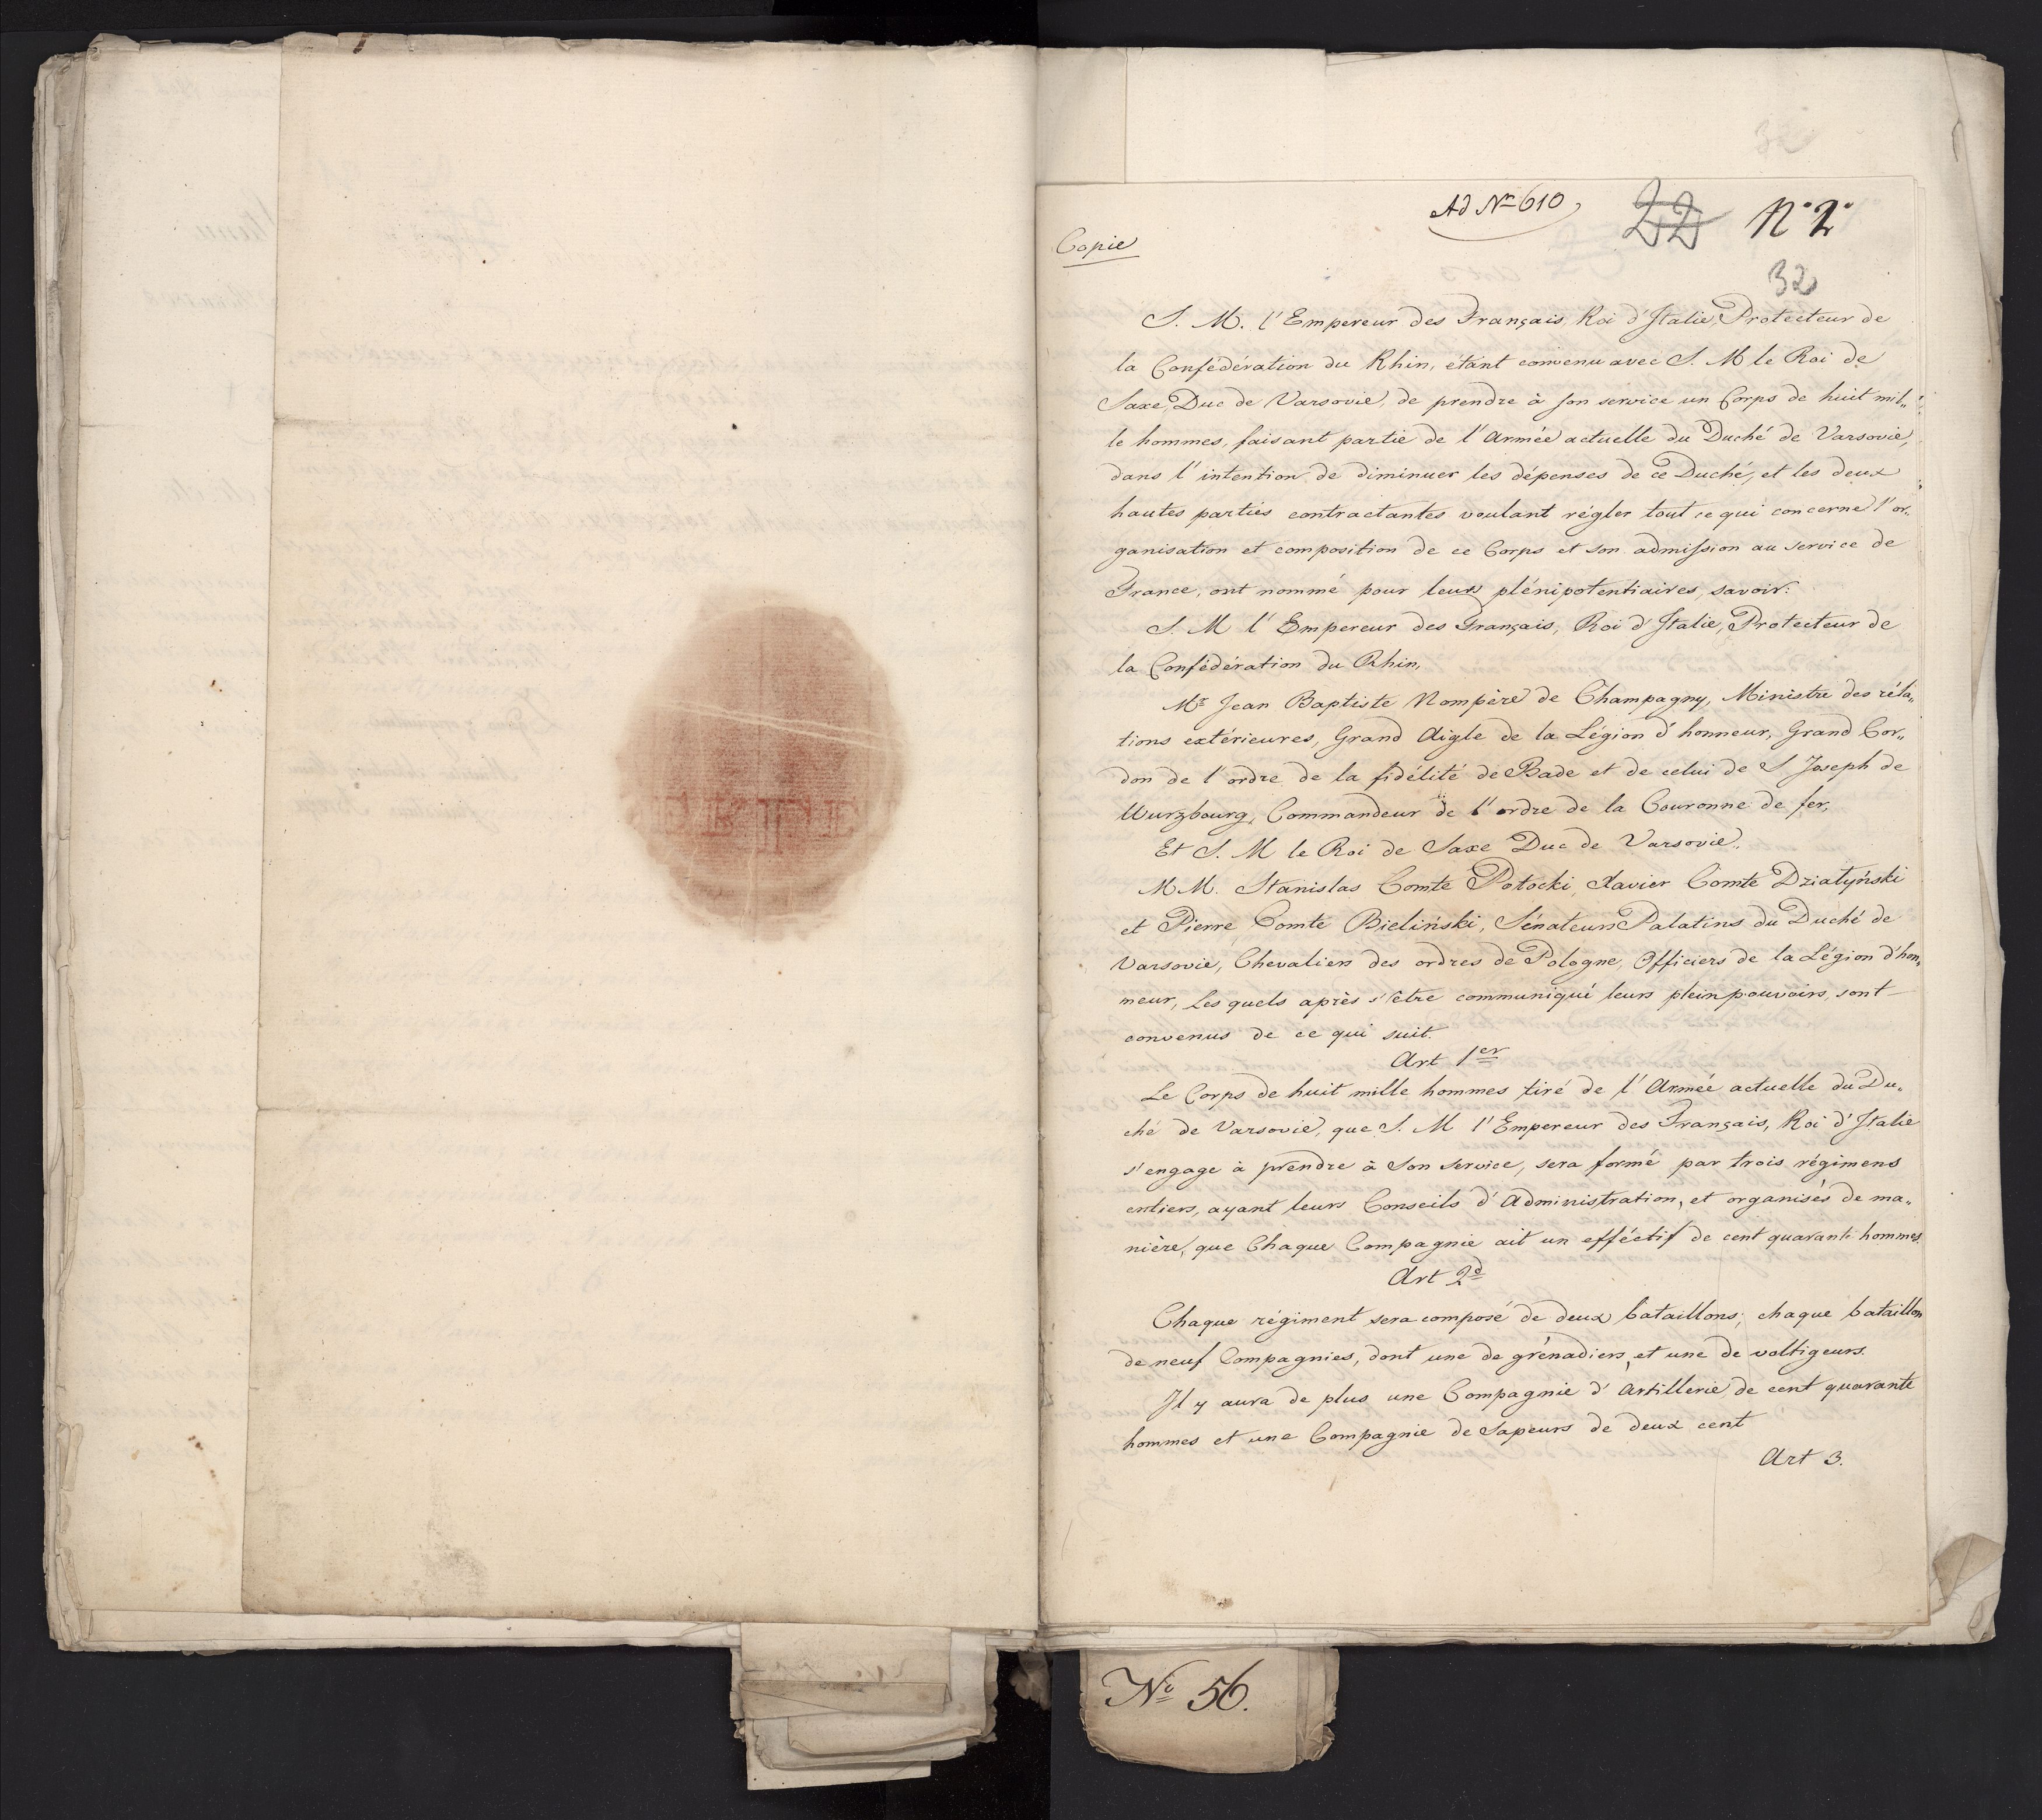 Ad Nro 610
22 N° 2°
Copie
32
S. M. l'Empereur des Français, Roi d'Italie, Protecteur de
la Confédération du Rhin, étant convenu avec S. M le Roi de
Saxe, Duc de Varsovie, de prendre à son service un Corps de huit mil„
le hommes, faisant partie de l'Armée actuelle du Duché de Varsovie,
dans l'intention de diminuer les dépenses de ce Duché, et les deux
hautes parties contractantes voulant régler tout ce qui concerne l'or„
ganisation et composition de ce Corps et son admission au service de
France, ont nommé pour leurs plénipotentiaires, savoir:
S. M l'Empereur des Français, Roi d'Italie, Protecteur de
la Confédération du Rhin,
Mr Jean Baptiste Nompère de Champagny, Ministre des réla„
tions extérieures, Grand Aigle de la Légion d'honneur, Grand Cor„
don de l'ordre de la fidélité de Bade et de celui de S Joseph de
Wurzbourg, Commandeur de l'ordre de la Couronne de fer,
Et S. M le Roi de Saxe Duc de Varsovie,
M M. Stanislas Comte Potocki, Xavier Comte Działyński
et Pierre Comte Bieliński, Sénateurs Palatins du Duché de
Varsovie, Chevaliers des ordres de Pologne, Officiers de la Légion d'hon„
neur, Les quels après s'être communiqué leurs pleinpouvoirs, sont
convenus de ce qui suit.
Art 1er
Le Corps de huit mille hommes tiré de l'Armée actuelle du Du„
ché de Varsovie, que S. M l'Empereur des Français, Roi d'Italie
s'engage à prendre à Son service, sera formé par trois régimens
entiers, ayant leurs Conseils d'Administration, et organisés de ma„
nière, que Chaque Compagnie ait un efféctif de cent quarante hommes.
Art 2d
Chaque régiment sera composé de deux bataillons; chaque bataillon
de neuf Compagnies, dont une de grénadiers, et une de voltigeurs.
Il y aura de plus une Compagnie d'Artillerie de cent quarante
hommes et une Compagnie de Sapeurs de deux cent
Art 3.
No 56.